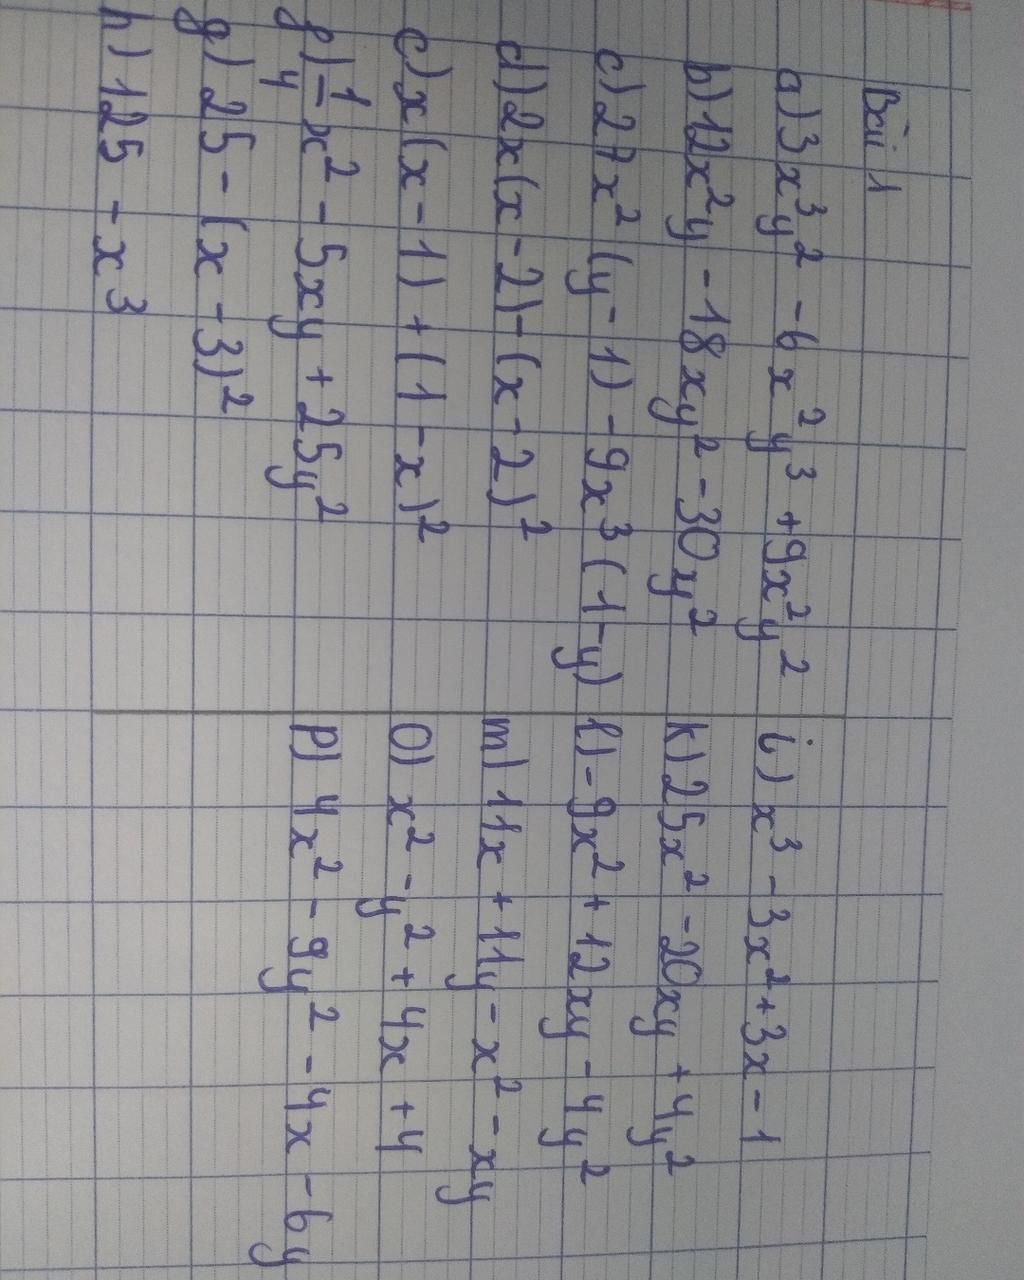 Bài 1
a) 3x³y² - 6x²y³ + 9x²y²
b) 12x²y - 18xy² - 30y²
c) 27x² (y - 1) - 9x³ (1 - y)
d) 2x(x - 2) - (x - 2)²
c) x(x - 1) + (1 - x)²
f) 1/4 x² - 5xy + 25y²
g) 25 - (x - 3)²
h) 125 - x³
i) x³ - 3x² + 3x - 1
k) 25x² - 20xy + 4y²
l) - 9x² + 12xy - 4y²
m) 11x + 11y - x² - xy
O) x² - y² + 4x + 4
P) 4x² - 9y² - 4x - 6y